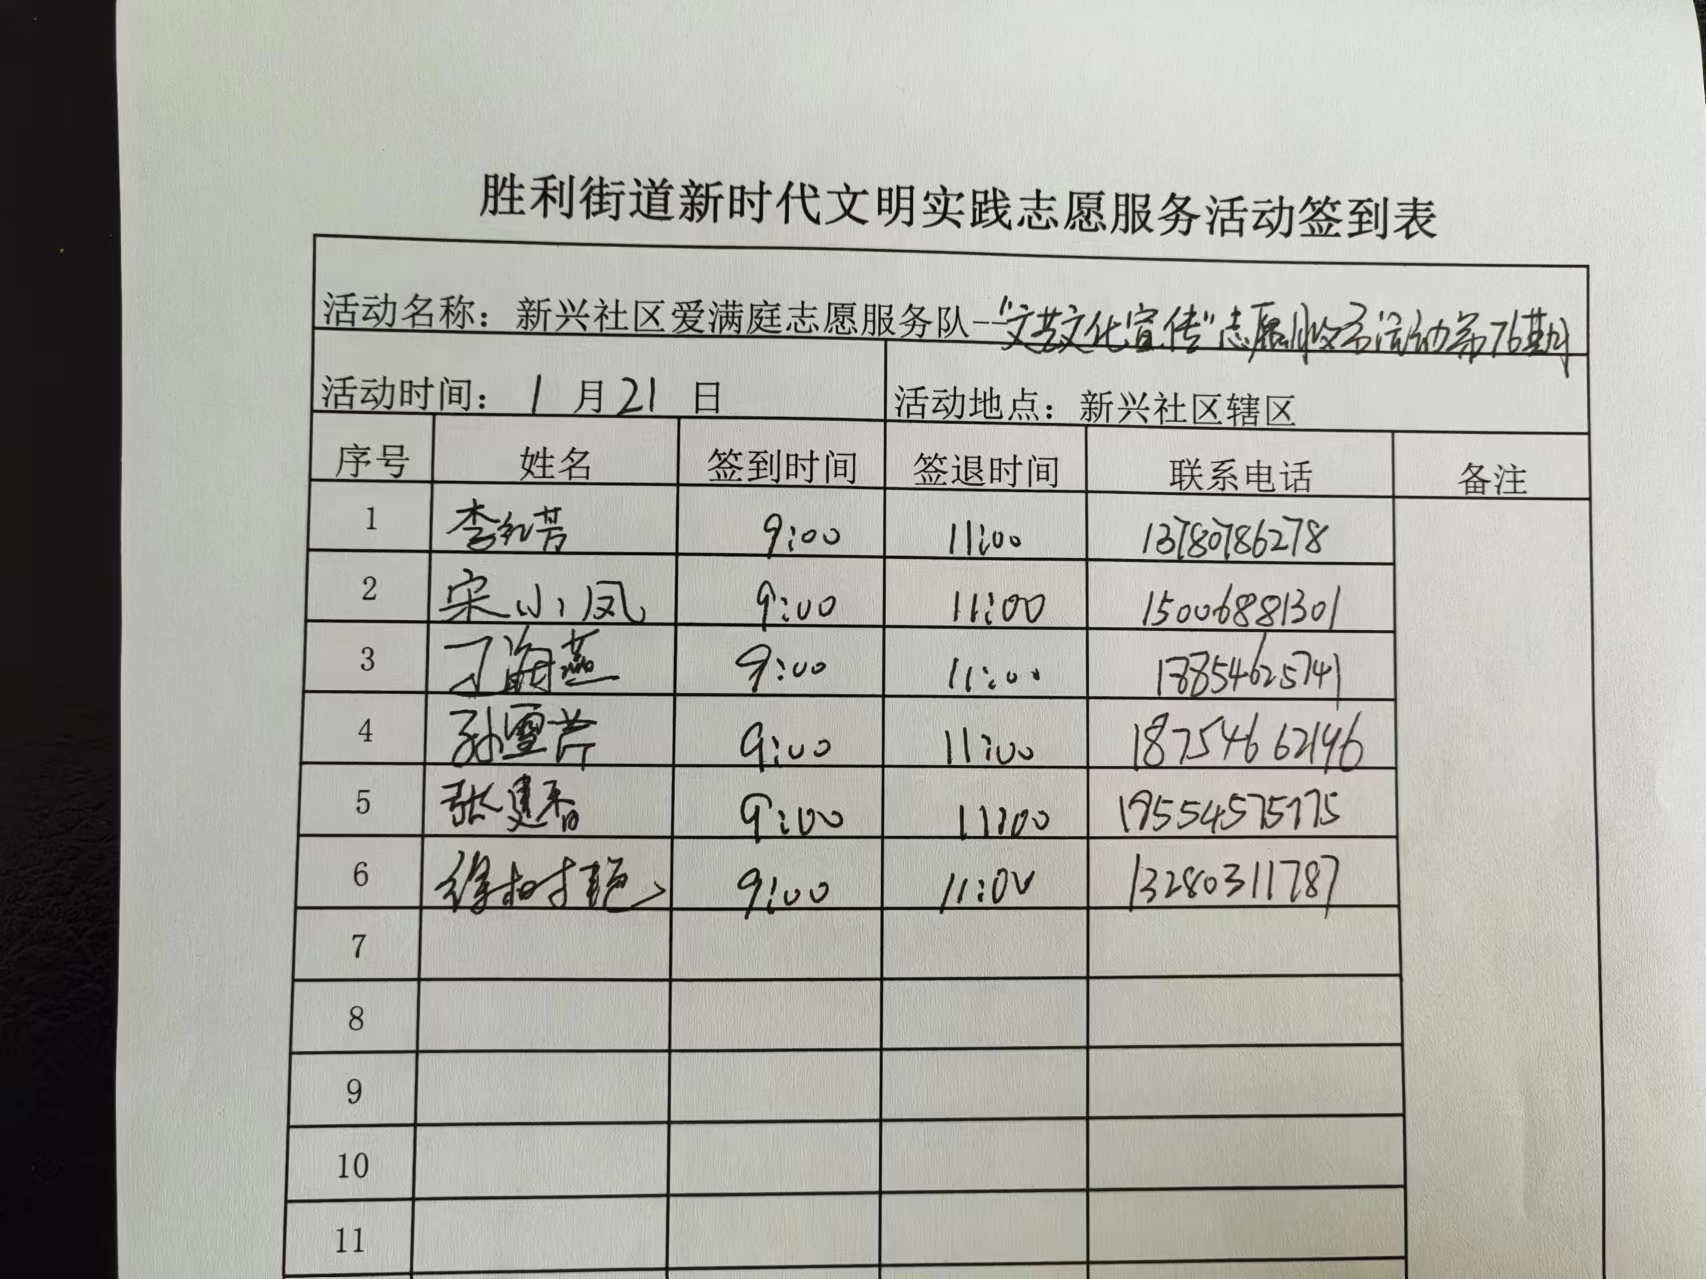 胜利街道新时代文明实践志愿服务活动签到表
活动名称：新兴社区爱满庭志愿服务队--"文艺文化宣传"志愿服务活动第76期
活动时间： 1 月 21 日 活动地点：新兴社区辖区
序号 姓名 签到时间 签退时间 联系电话 备注
1 李红芳 9:00 11:00 13780786278
2 宋小凤 9:00 11:00 15006881301
3 丁海燕 9:00 11:00 18854625741
4 孙雪芹 9:00 11:00 18754662196
5 张建香 9:00 11:00 19554575775
6 徐树艳 9:00 11:00 13280311787
7
8
9
10
11